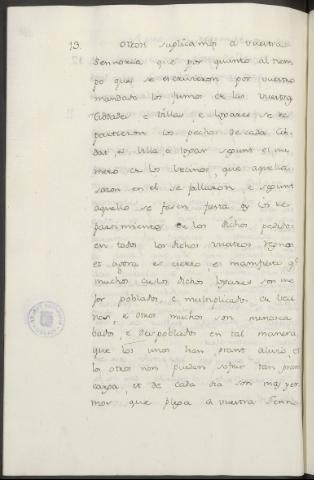 13. Otrosi suplicamos a vuestra
Sennoria que por quanto al tiem
po que se escrivieron por vuestro
mandado los fumos de las vuestras
Cibdades e villas, e logares se re
partieron los pechos de cada Cib
dat, e villa e logar segunt el nu
mero de los vecinos, que aquella
sason en el se fallaron, e segunt
aquello se fasen fasta oy los re
partimientos de los dichos pedidos
en todos los dichos vuestros Regnos
et agora es cierto, e manifiesto q.e
muchos de los dichos logares son me
jor poblados, e multiplicados de veci
nos, e otros muchos son menosca
bados, e despoblados en tal manera,
que los unos han grant alivio, et
los otros non pueden sofrir tan grant
carga, et de cada dia son mas yer
mos, que plega a vuestra Senno